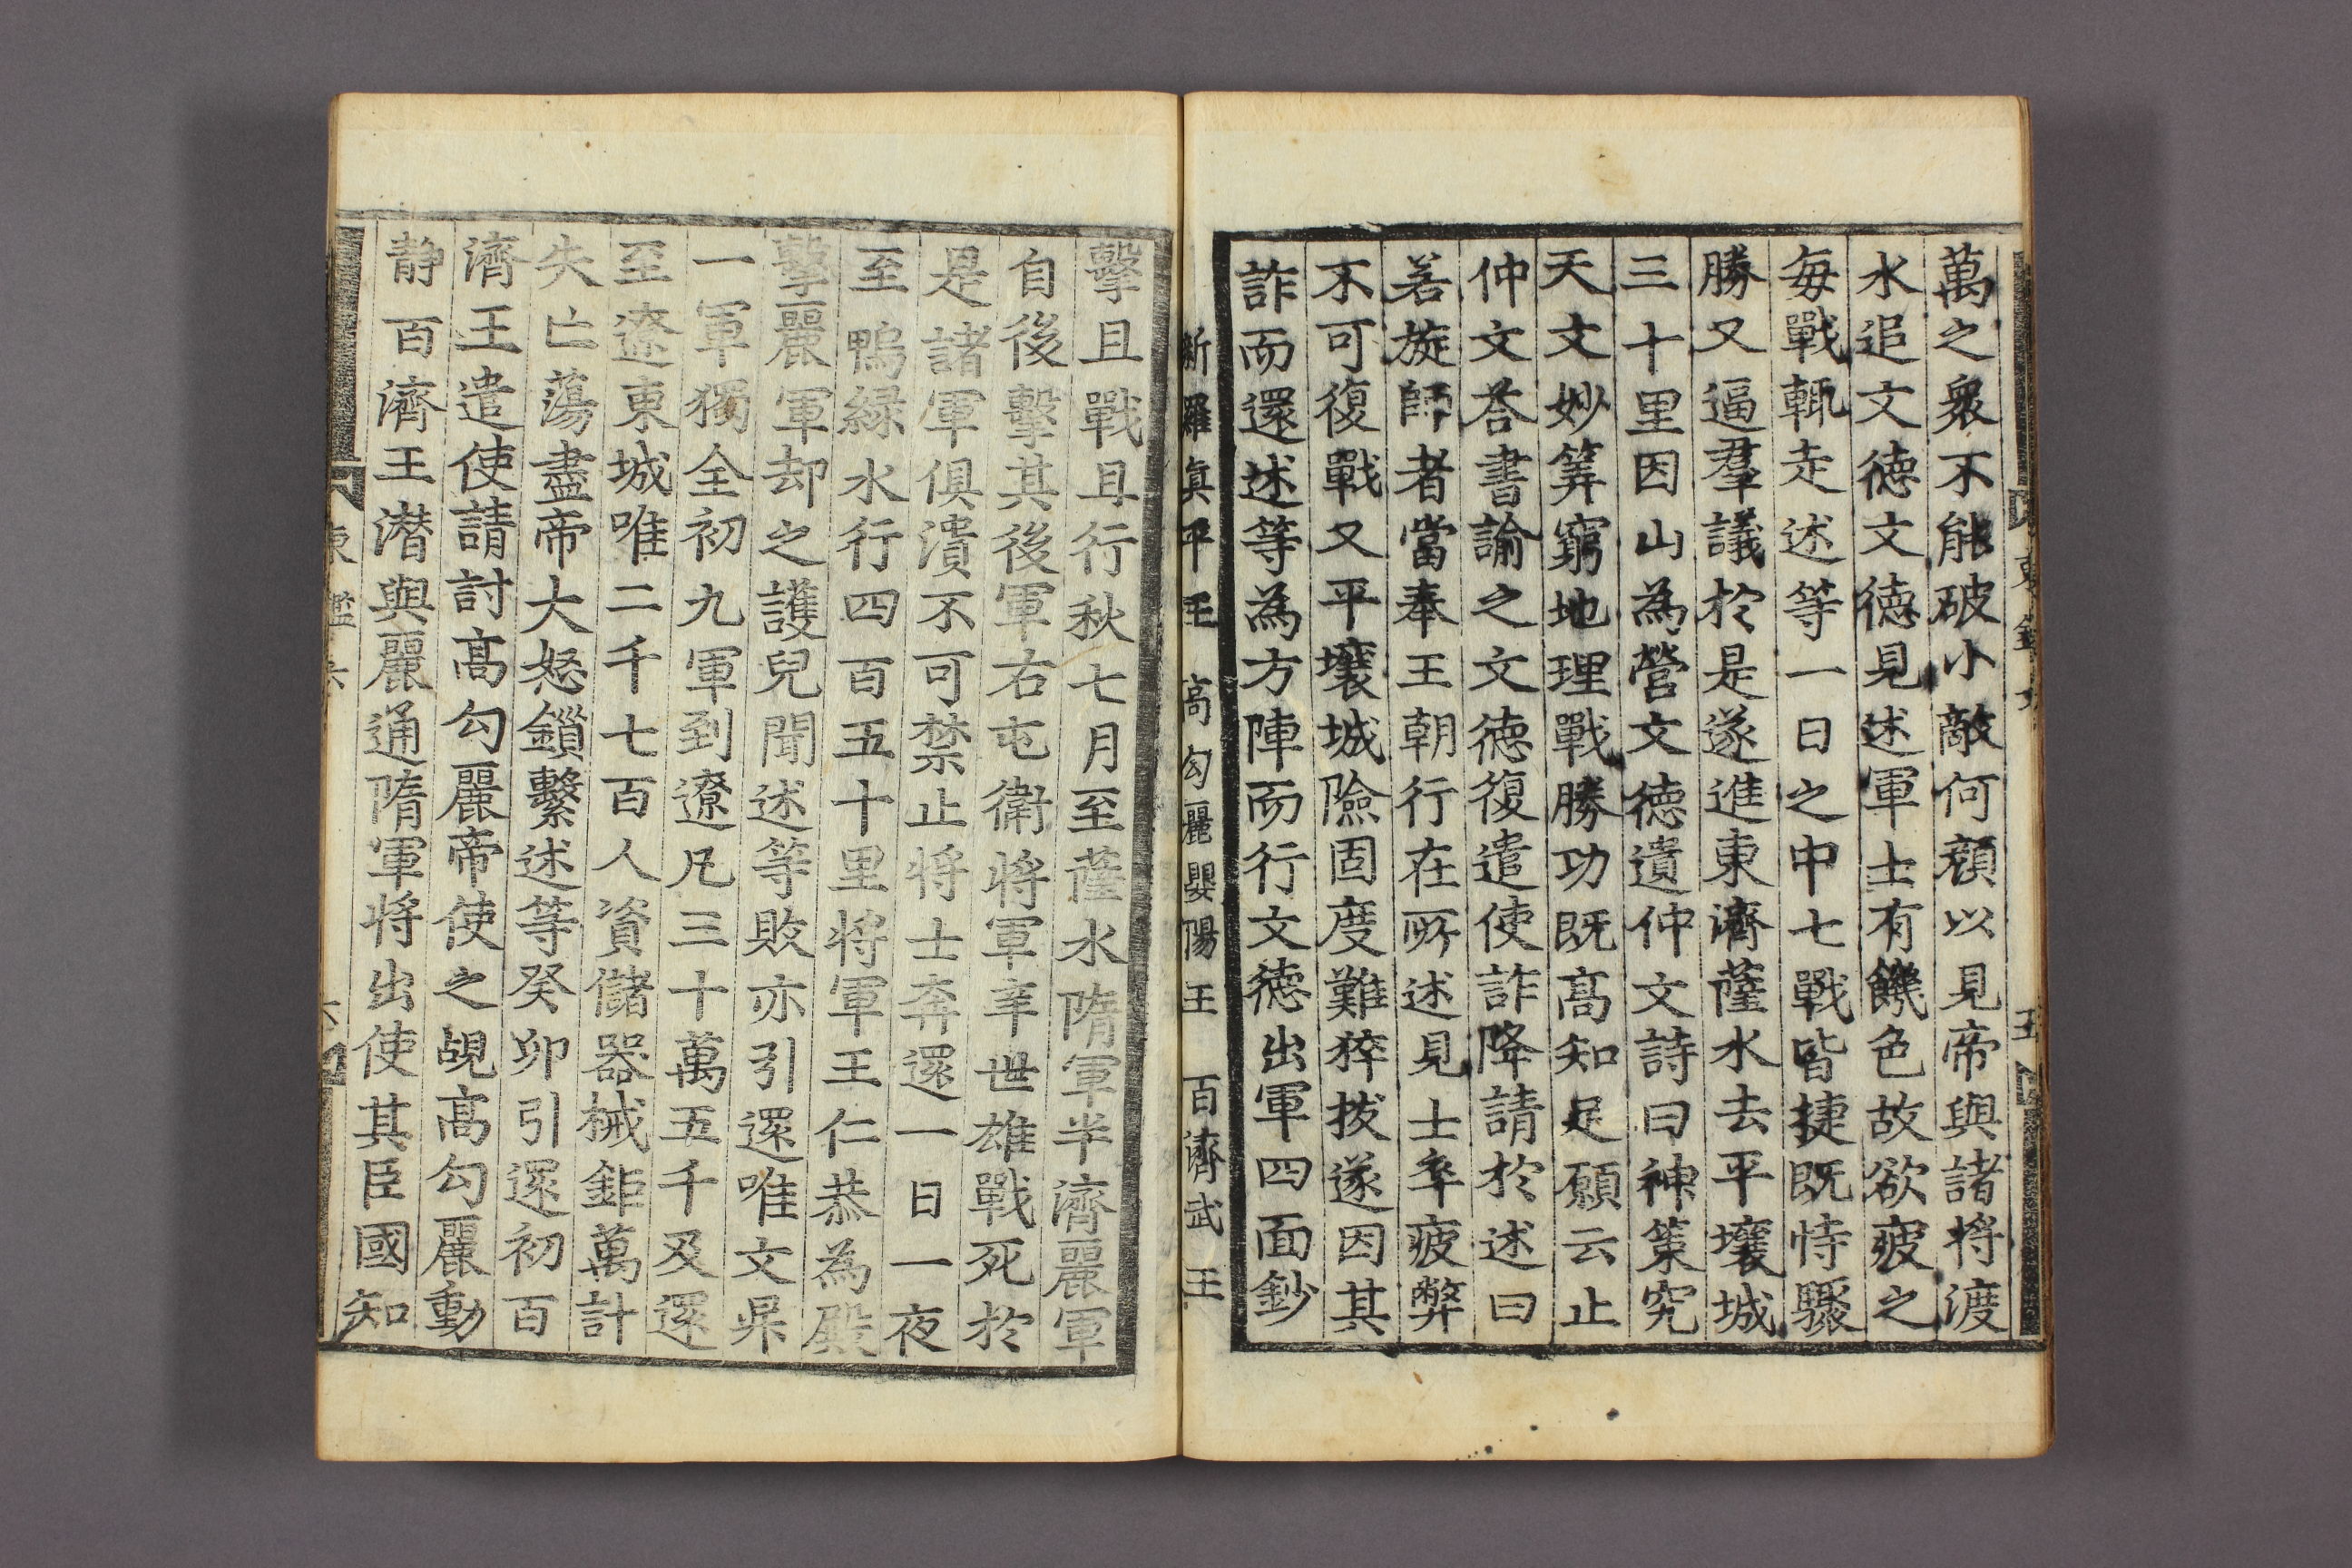 萬之衆不能破小敵何顔以見帝與諸將渡
水追文德文德見述軍士有饑色故欲疲之
每戰輒走述等一日之中七戰皆捷既恃驟
勝又逼羣議於是遂進東濟薩水去平壤城
三十里因山為營文德遺仲文詩曰神策究
天文妙筭窮地理戰勝功既高知足願云止
仲文荅書諭之文德復遣使詐降請於述曰
若旋師者當奉王朝行在所述見士卒疲弊
不可復戰又平壤城險固度難猝拔遂因其
詐而還述等為方陣而行文德出軍四面鈔
新羅真平王 高句麗嬰陽王 百濟武王
擊且戰且行秋七月至薩水隋軍半濟麗軍
自後擊其後軍右屯衛將軍辛世雄戰死於
是諸軍俱潰不可禁止將士奔還一日一夜
至鴨綠水行四百五十里將軍王仁恭為殿
擊麗軍却之護兒聞述等敗亦引還唯文昇
一軍獨全初九軍到遼凡三十萬五千及還
至遼東城唯二千七百人資儲器械鉅萬計
失亡蕩盡帝大怒鎖繫述等癸卯引還初百
濟王遣使請討高句麗帝使之覘高句麗動
静百濟王潜與麗通隋軍將出使其臣國知
東鑑六